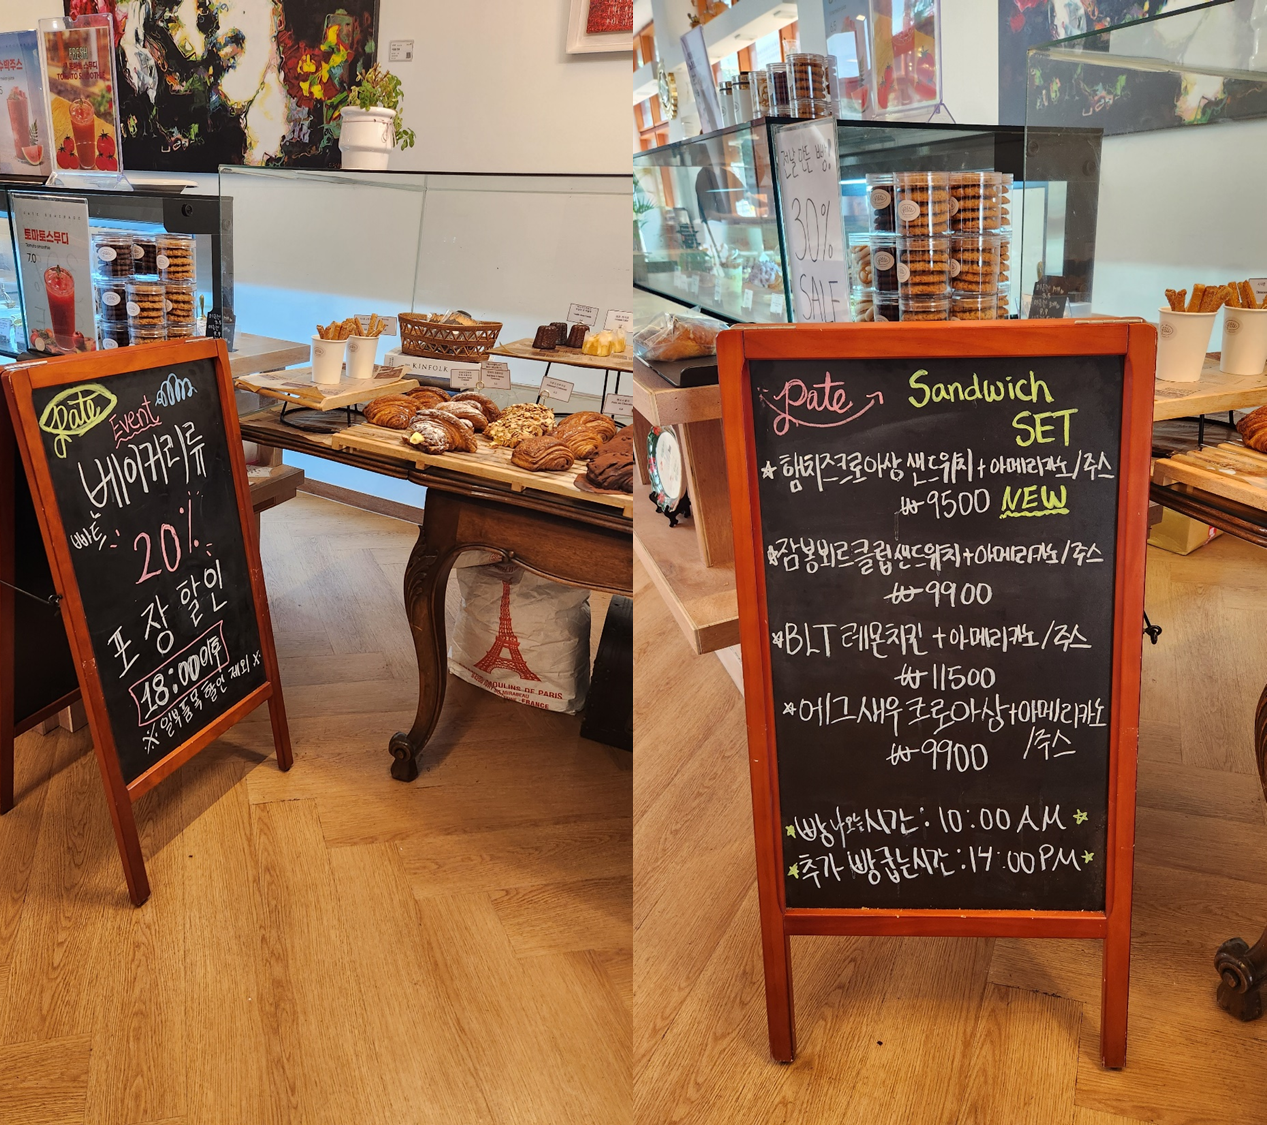 수박주스
FRESH
TOMATO SMOOTHIE
토마토스무디
7.0
KINFOLK
pate
Event
베이커리류
20%
포장 할인
18:00이후
※ 일부품목 할인 제외 ※
MOULINS DE PARIS
FRANCE
30%
SALE
pate
Sandwich
SET
☆햄치즈크로아상샌드위치+아메리카노/주스
₩9500 NEW
☆잠봉뵈르클럽샌드위치+아메리카노/주스
₩9900
☆BLT레몬치킨+아메리카노/주스
₩11500
☆에그새우크로아상+아메리카노
/주스
₩9900
☆빵나오는시간:10:00AM☆
☆추가 빵굽는시간:14:00PM☆